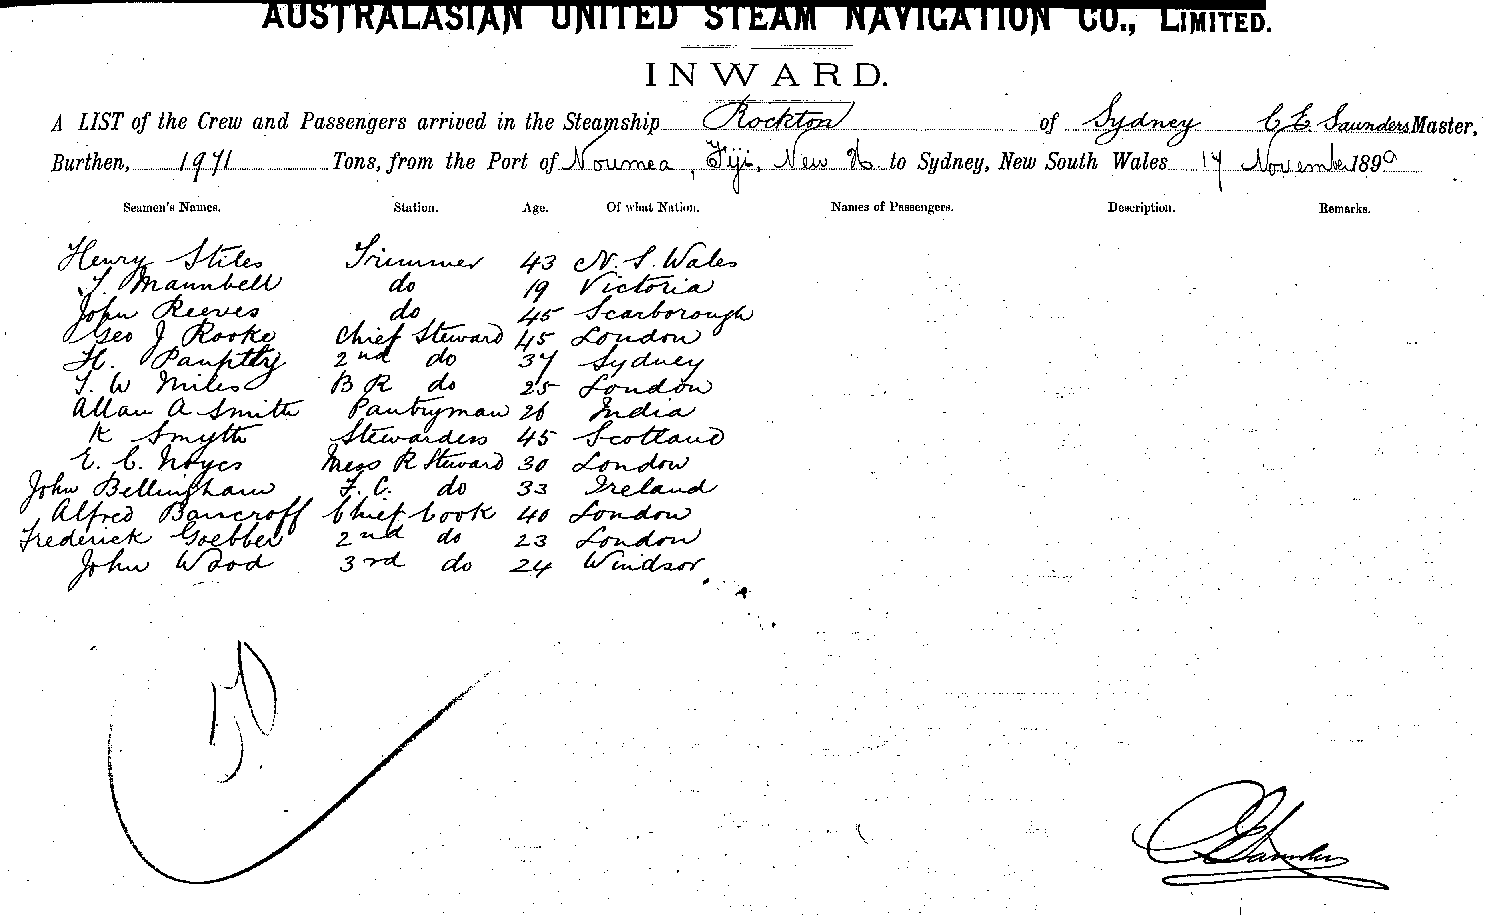 AUSTRALASIAN UNITED STEAM NAVIGATION CO., LIMITED.
INWARD.
A LIST of the Crew and Passengers arrived in the Steamship Rockton of Sydney C E Saunders Master,
Burthen, 1971 Tons, from the Port of Noumea, Fiji, New to Sydney, New South Wales 17 November 1890
Seamen's Names. Station. Age. Of what Nation. Names of Passengers. Description. Remarks.
Henry Stiles Trimmer 43 N. S. Wales
do 19 Victoria
John Reeves do 45 Scarborough
Geo J Rooke Chief Steward 45 London
H. 2nd do 37 Sydney
T. W Miles B R do 25 London
Allan A Smith Pantryman 26 India
K Smyth Stewardess 45 Scotland
E. C. Noyes Mess R Steward 30 London
John Bellingham F. C. do 33 Ireland
Alfred Bancroff Chief Cook 40 London
Frederick Goebber 2nd do 23 London
John Wood 3rd do 24 Windsor
50
C E Saunders